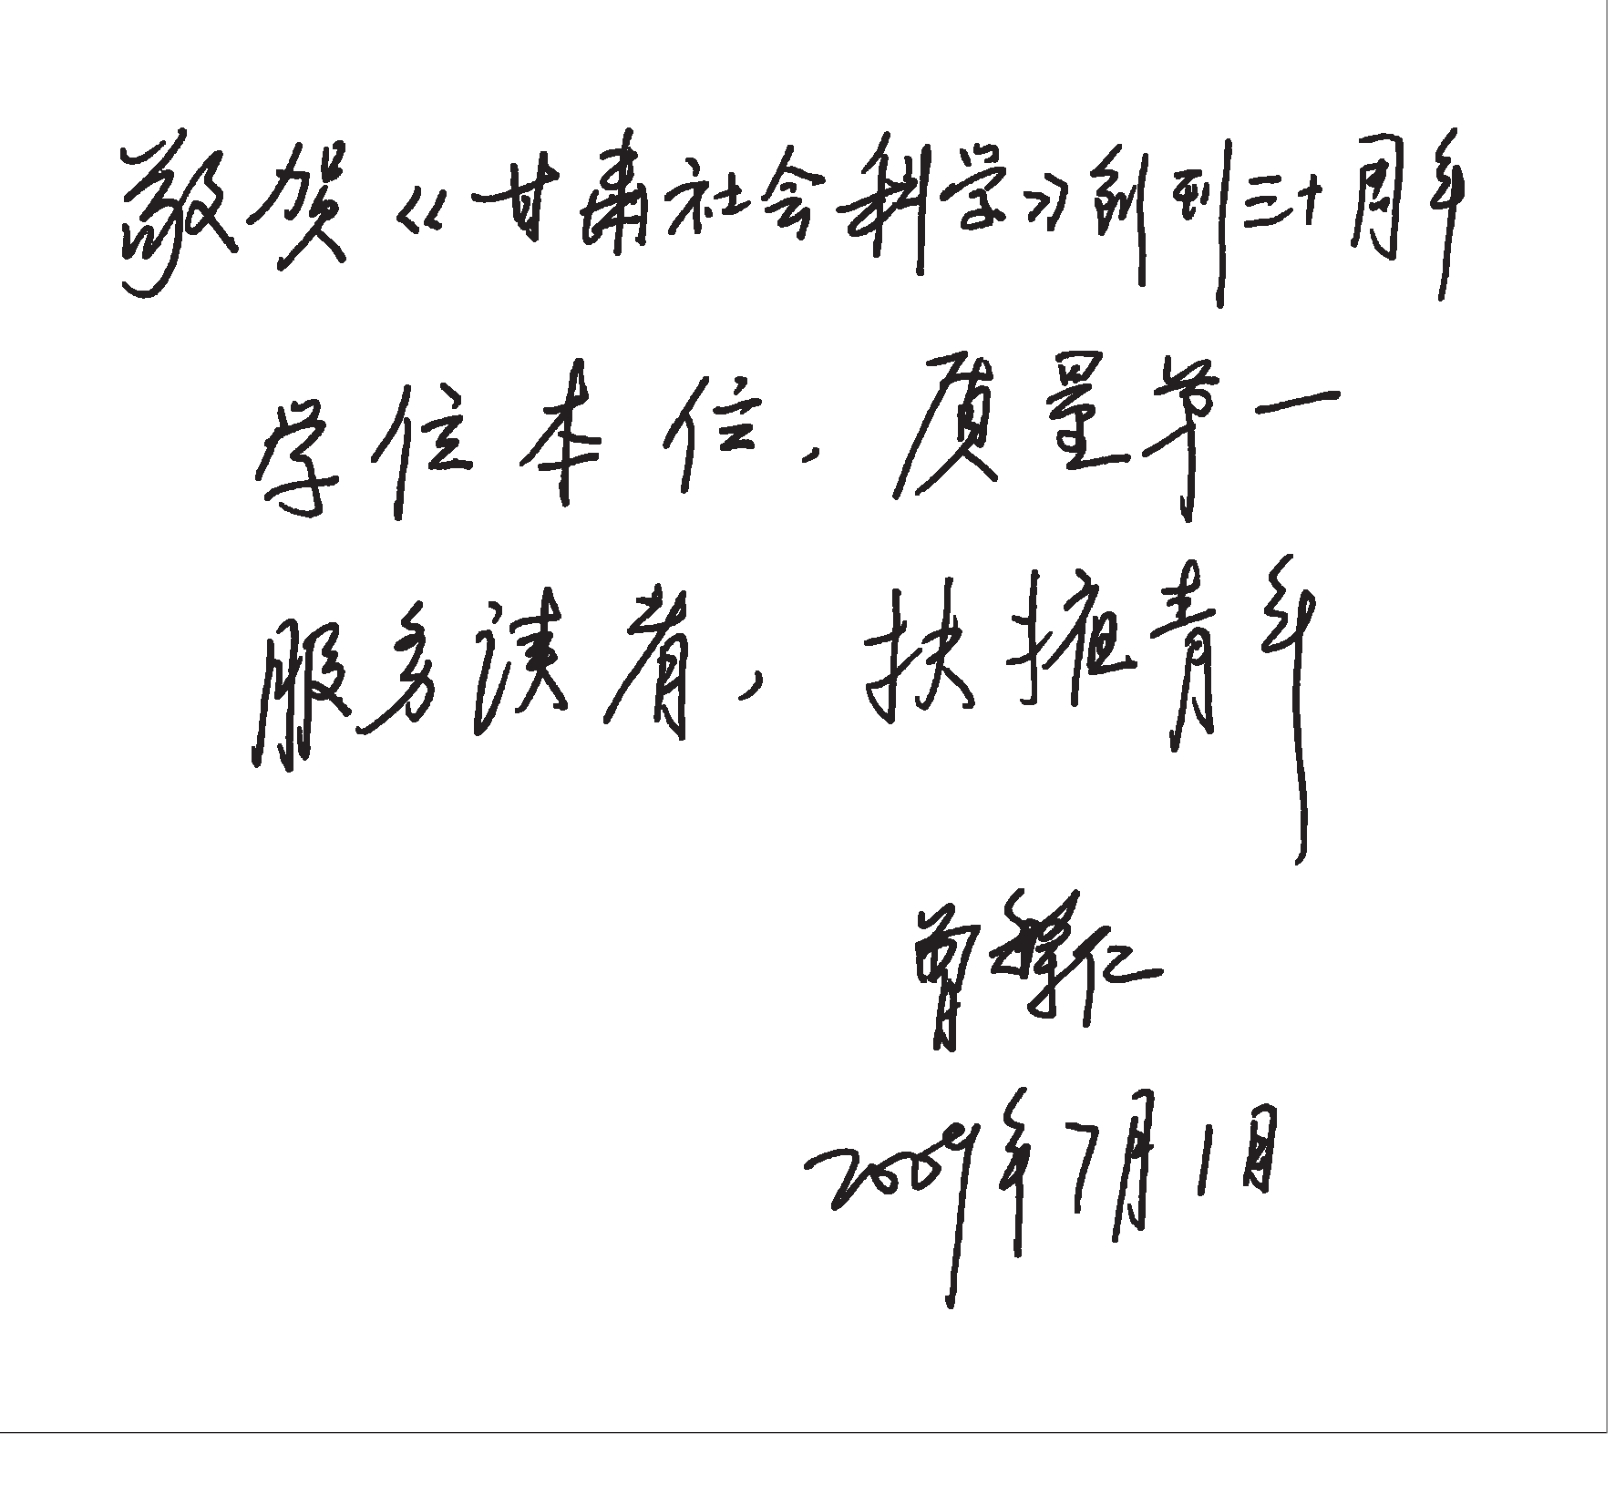 敬贺《甘肃社会科学》创刊三十周年
学位本位，质量第一
服务读者，扶掖青年
曾繁仁
2009年7月1日